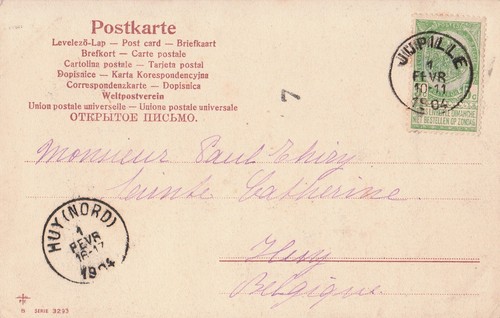 Postkarte
Levelező-Lap — Post card — Briefkaart
Brefkort — Carte postale
Cartolina postale — Tarjeta postal
Dopisnice — Karta Korespondencyjna
Correspondenzkarte — Dopisnica
Weltpostverein
Union postale universelle — Unione postale universale
ОТКРЫТОЕ ПИСЬМО.
7
JUPILLE
1
FEVR
10-11
1904
NE PAS LIVRER LE DIMANCHE
NIET BESTELLEN OP ZONDAG
Monsieur Paul Thiry
Sainte Catherine
Huy
Belgique
HUY (NORD)
1
FEVR
16-17
1904
SERIE 3293